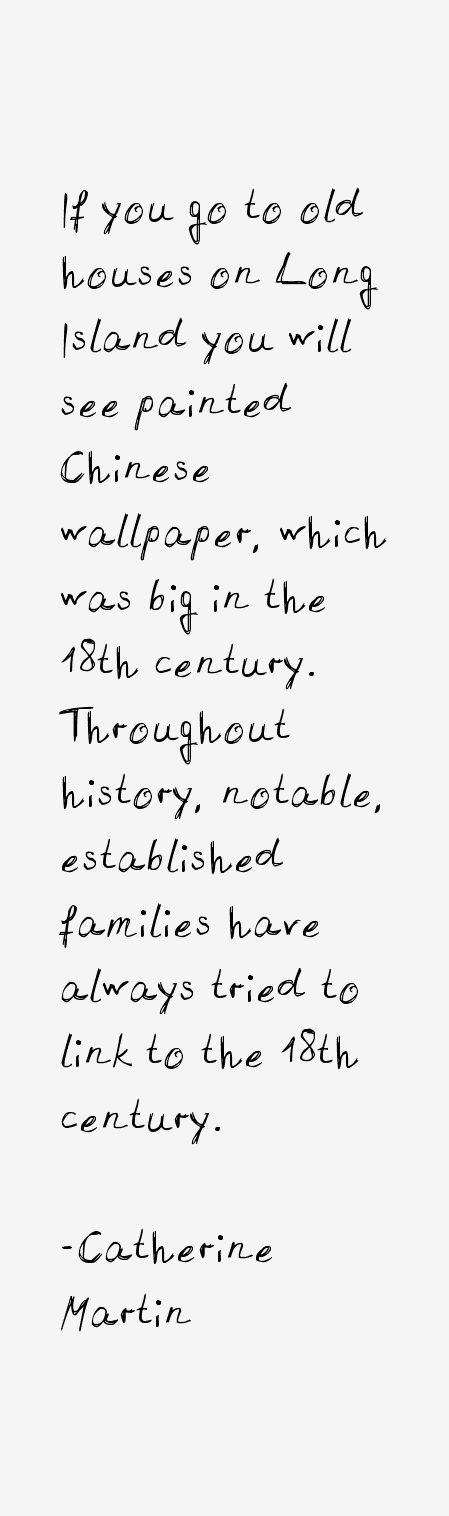 If you go to old
houses on Long
Island you will
see painted
Chinese
wallpaper, which
was big in the
18th century.
Throughout
history, notable,
established
families have
always tried to
link to the 18th
century.
-Catherine
Martin